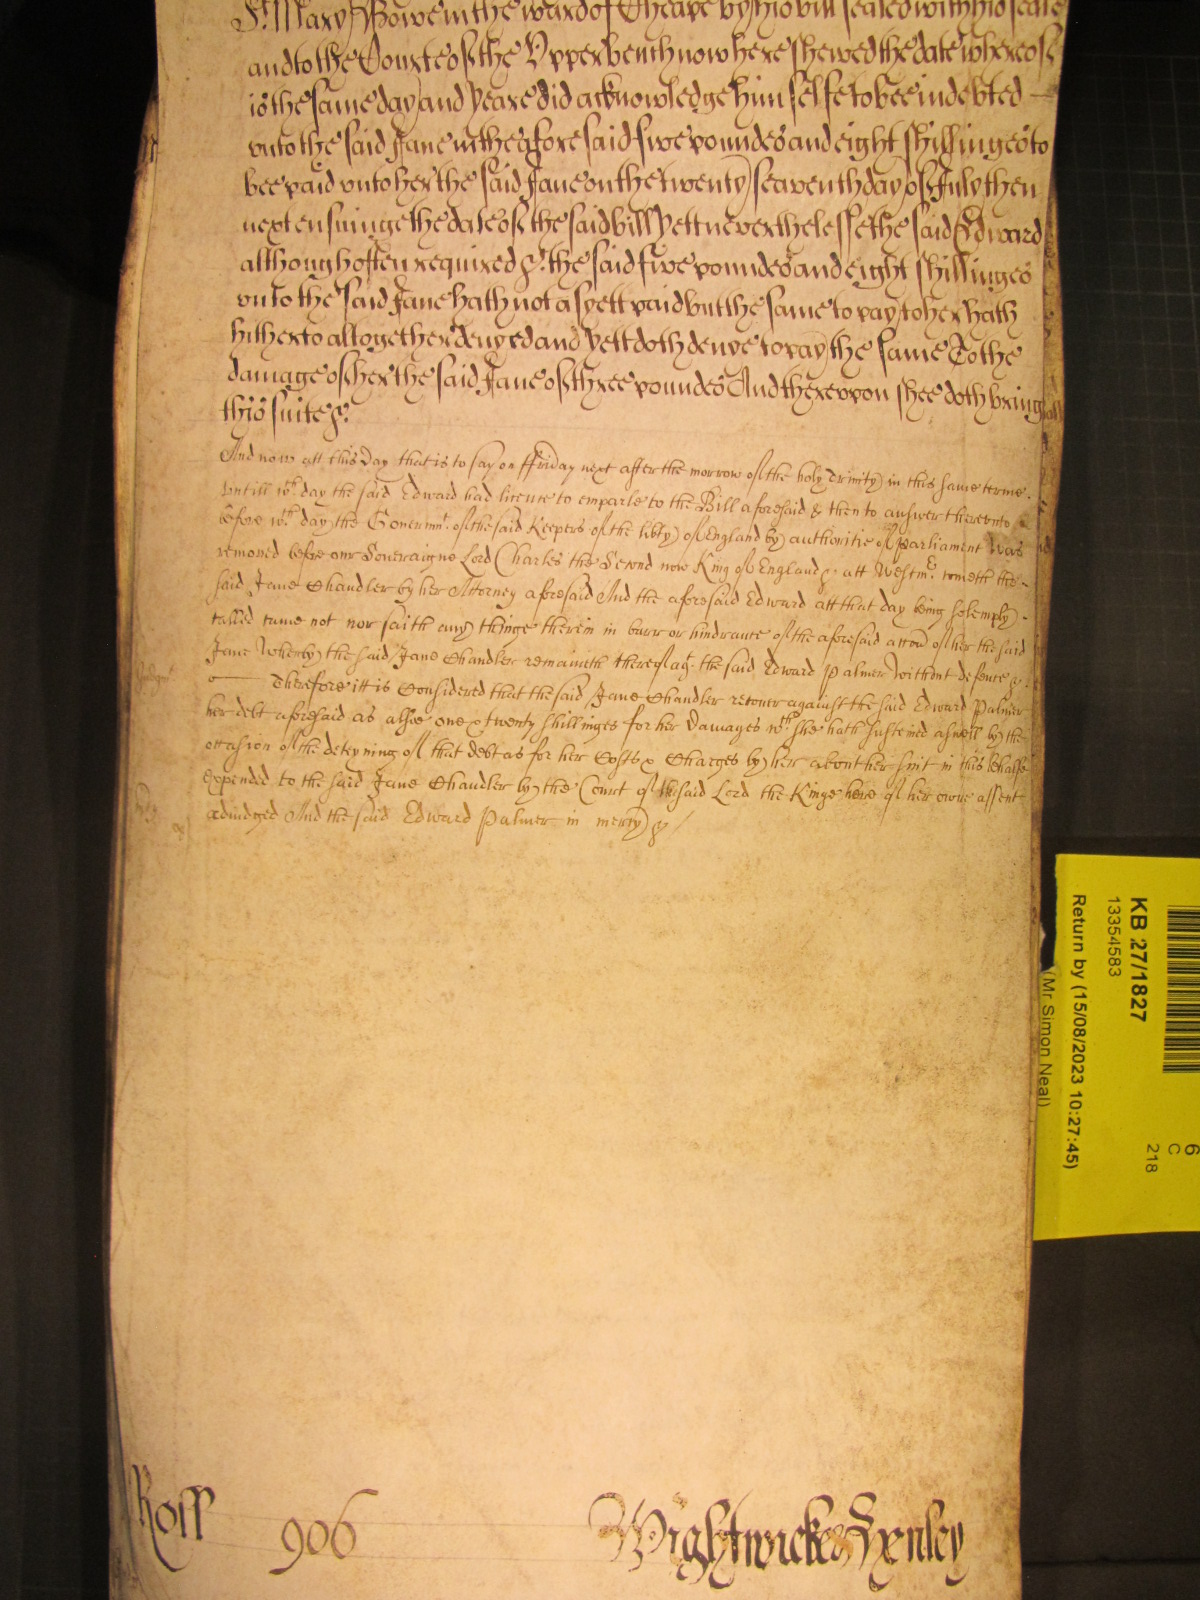 St. Mary Bowe in the ward of Cheape by his bill sealed with his seale
and to the Courte of the Upper bench now here shewed the date whereof
is the same day and yeare did acknowledge himselfe to bee indebted
unto the said Jane in the aforesaid five poundes and eight shillinges to
bee paid unto her the said Jane on the twenty seaventh day of July then
next ensuinge the date of the said bill Yett neverthelesse the said Edward
although often required &c. the said five poundes and eight shillinges
unto the said Jane hath not as yett paid but the same to pay to her hath
hitherto altogether denyed and yett doth denye to pay the same To the
damage of her the said Jane of three poundes And thereupon shee doth bring
this suite &c.
And now att this day that is to say on ffriday next after the morrow of the holy Trinity in this same terme
untill wch day the said Edward had licence to emparle to the Bill aforesaid & then to answer thereunto
before wch day the Govermt. of the said Keepers of the libty of England by authoritie of Parliament was
removed before our Soveraigne Lord Charles the Second now King of England &c. att Westmr. cometh the
said Jane Chandler by her Attorney aforesaid And the aforesaid Edward att that day being solemply
called came not nor saith any thinge therein in barr or hindrance of the aforesaid accon of her the said
Jane Whereby the said Jane Chandler remaineth thereof agt. the said Edward Palmer without defence &c.
Judgmt
Therefore itt is Considered that the said Jane Chandler recover against the said Edward Palmer
her debt aforesaid as alsoe one & twenty shillinges for her Damages wch she hath susteined aswell by the
occasion of the deteyning of that debt as for her Costs & Charges by her about her suit in this behalfe
expended to the said Jane Chandler by the Court of the said Lord the Kinge here of her owne assent
adiudged And the said Edward Palmer in mercy &c
Roff 906 Wightwicke & Henley
KB 27/1827
13354583
Return by (15/08/2023 10:27:45)
(Mr Simon Neal)
6
C
218